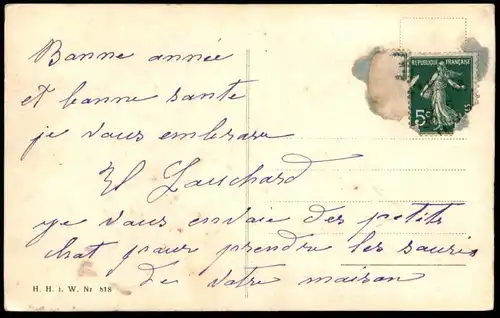 Banne année
et banne sante
je vous embrase
El Lauchard
ye vous envaie des petits
chat paur prendre les sauris
de votre maison
REPUBLIQUE FRANÇAISE
5c
H. H. i. W. Nr. 818